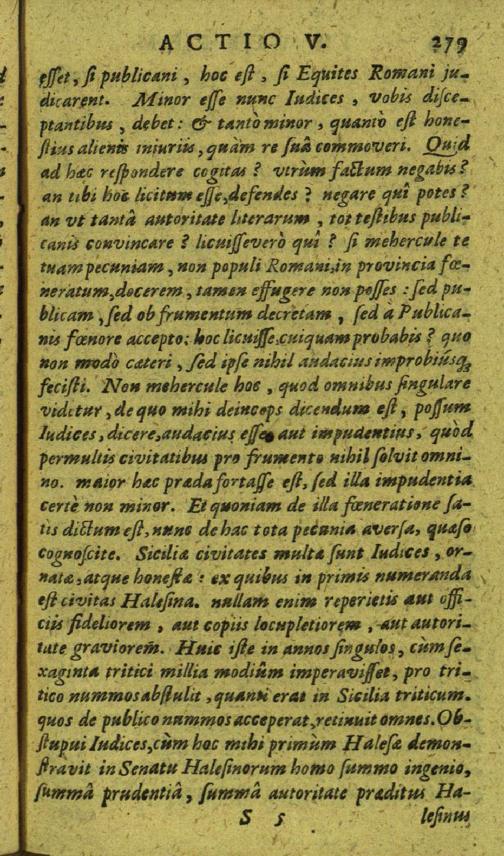 ACTIO V. 279
esset, si publicani, hoc est, si Equites Romani ju-
dicarent. Minor esse nunc Iudices, vobis disce-
ptantibus, debet: & tantò minor, quantò est hone-
stius alienis iniuriis, quàm re suâ commoveri. Quid
ad hæc respondere cogitas? vtrùm factum negabis?
an tibi hoc licitum esse, defendes? negare quî potes?
an vt tantâ autoritate literarum, tot testibus publi-
canis convincare? licuisse verò quî? si mehercule te
tuam pecuniam, non populi Romani, in provincia fœ-
neratum, docerem, tamen effugere non posses: sed pu-
blicam, sed ob frumentum decretam, sed à Publica-
nis fœnore accepto; hoc licuisse, cuiquam probabis? quo
non modò cæteri, sed ipse nihil audacius improbiúsq;
fecisti. Non mehercule hoc, quod omnibus singulare
videtur, de quo mihi deinceps dicendum est, possum
Iudices, dicere, audacius esse aut impudentius, quòd
permultis civitatibus pro frumento nihil solvit omni-
no. maior hæc præda fortasse est, sed illa impudentia
certè non minor. Et quoniam de illa fœneratione sa-
tis dictum est, nunc de hac tota pecunia aversa, quæso
cognoscite. Siciliæ civitates multæ sunt Iudices, or-
natæ, atque honestæ: ex quibus in primis numeranda
est civitas Halesina. nullam enim reperietis aut offi-
ciis fideliorem, aut copiis locupletiorem, aut autori-
tate graviorem. Huic iste in annos singulos, cùm se-
xaginta tritici millia modiûm imperavisset, pro tri-
tico nummos abstulit, quanti erat in Sicilia triticum.
quos de publico nummos acceperat, retinuit omnes. Ob-
stupui Iudices, cùm hoc mihi primùm Halesæ demon-
stravit in Senatu Halesinorum homo summo ingenio,
summâ prudentiâ, summâ autoritate præditus Ha-
S 5 lesinus